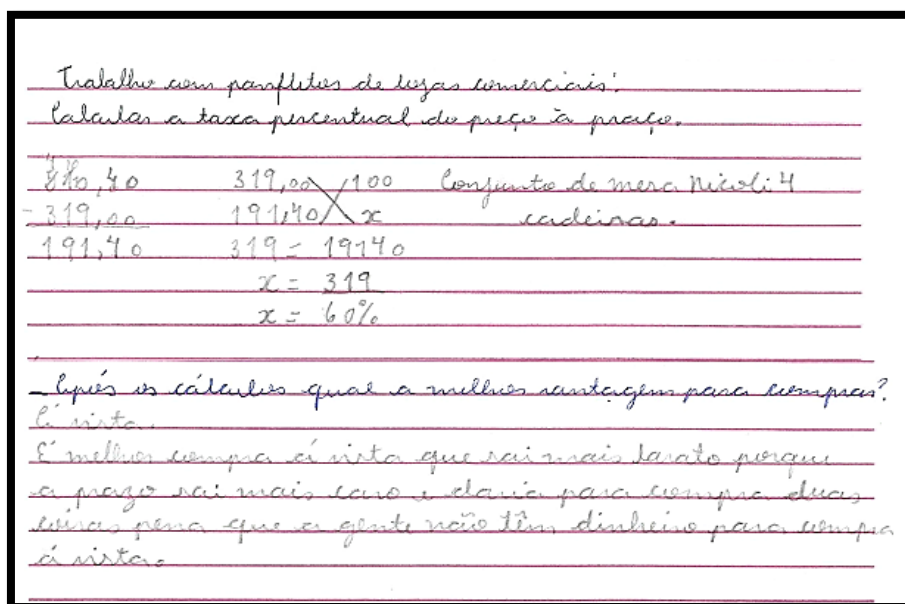 Trabalho com panfletos de lojas comerciais:
Calcular a taxa percentual do preço à praço.
510,40 319,00 100 Conjunto de mesa Nicoli 4
- 319,00 191,40 x cadeiras.
191,40 319 = 19140
x = 319
x = 60%
- Após os cálculos qual a melhor vantagem para comprar?
Á vista.
É melhor compra á vista que sai mais barato porque
a prazo sai mais caro e daria para compra duas
coisas pena que a gente não têm dinheiro para compra
á vista.